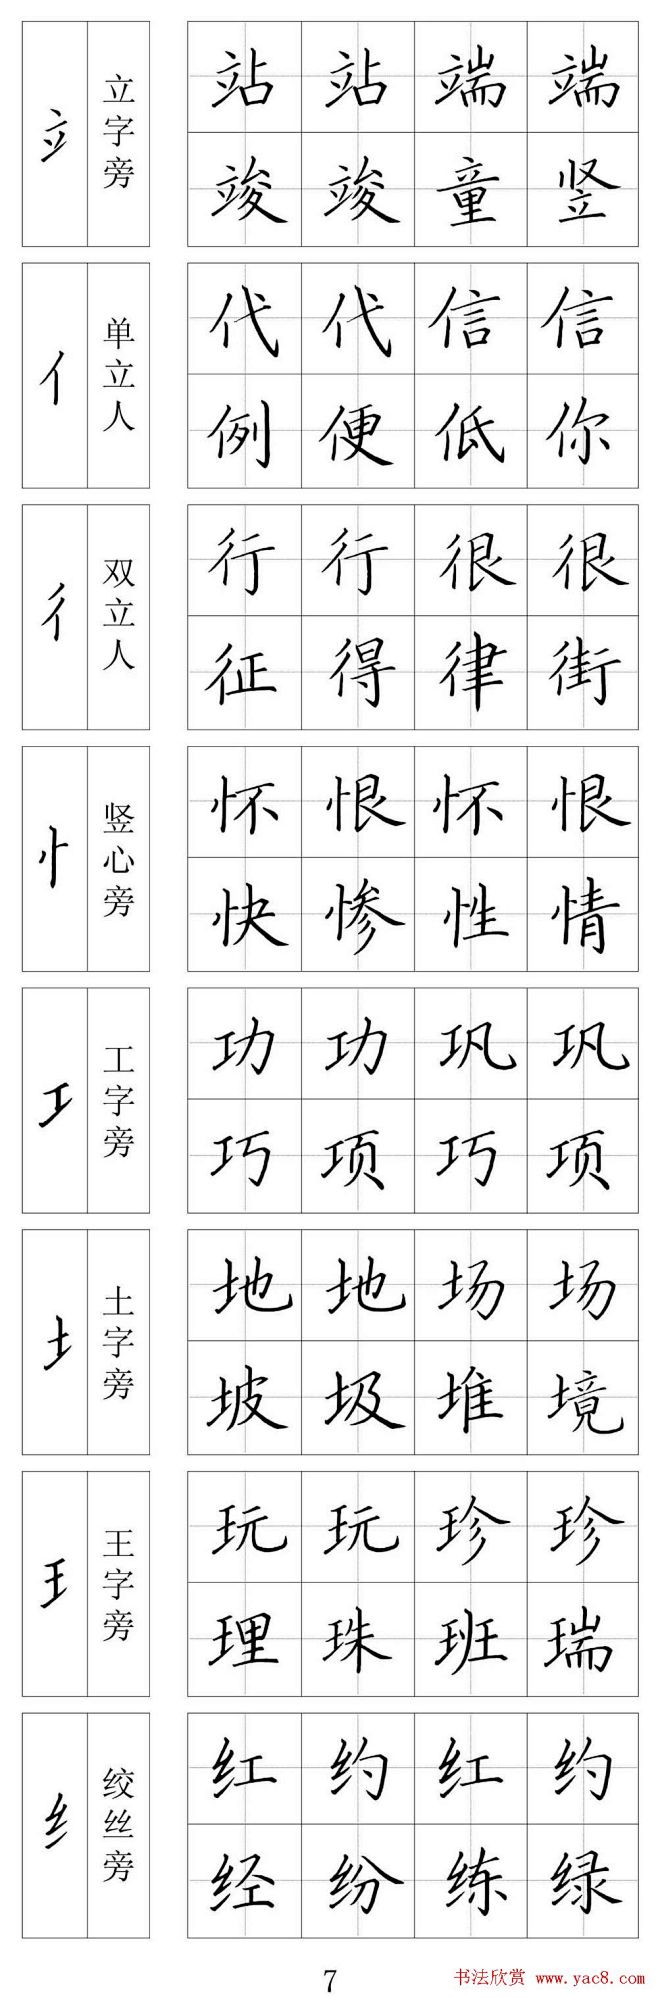 立字旁
站站端端
竣竣童竖
亻
单立人
代代信信
例便低你
彳
双立人
行行很很
征得律街
忄
竖心旁
怀恨怀恨
快惨性情
工
工字旁
功功巩巩
巧项巧项
土
土字旁
地地场场
坡圾堆境
王
王字旁
玩玩珍珍
理珠班瑞
纟
绞丝旁
红约红约
经纷练绿
7
书法欣赏 www.yac8.com